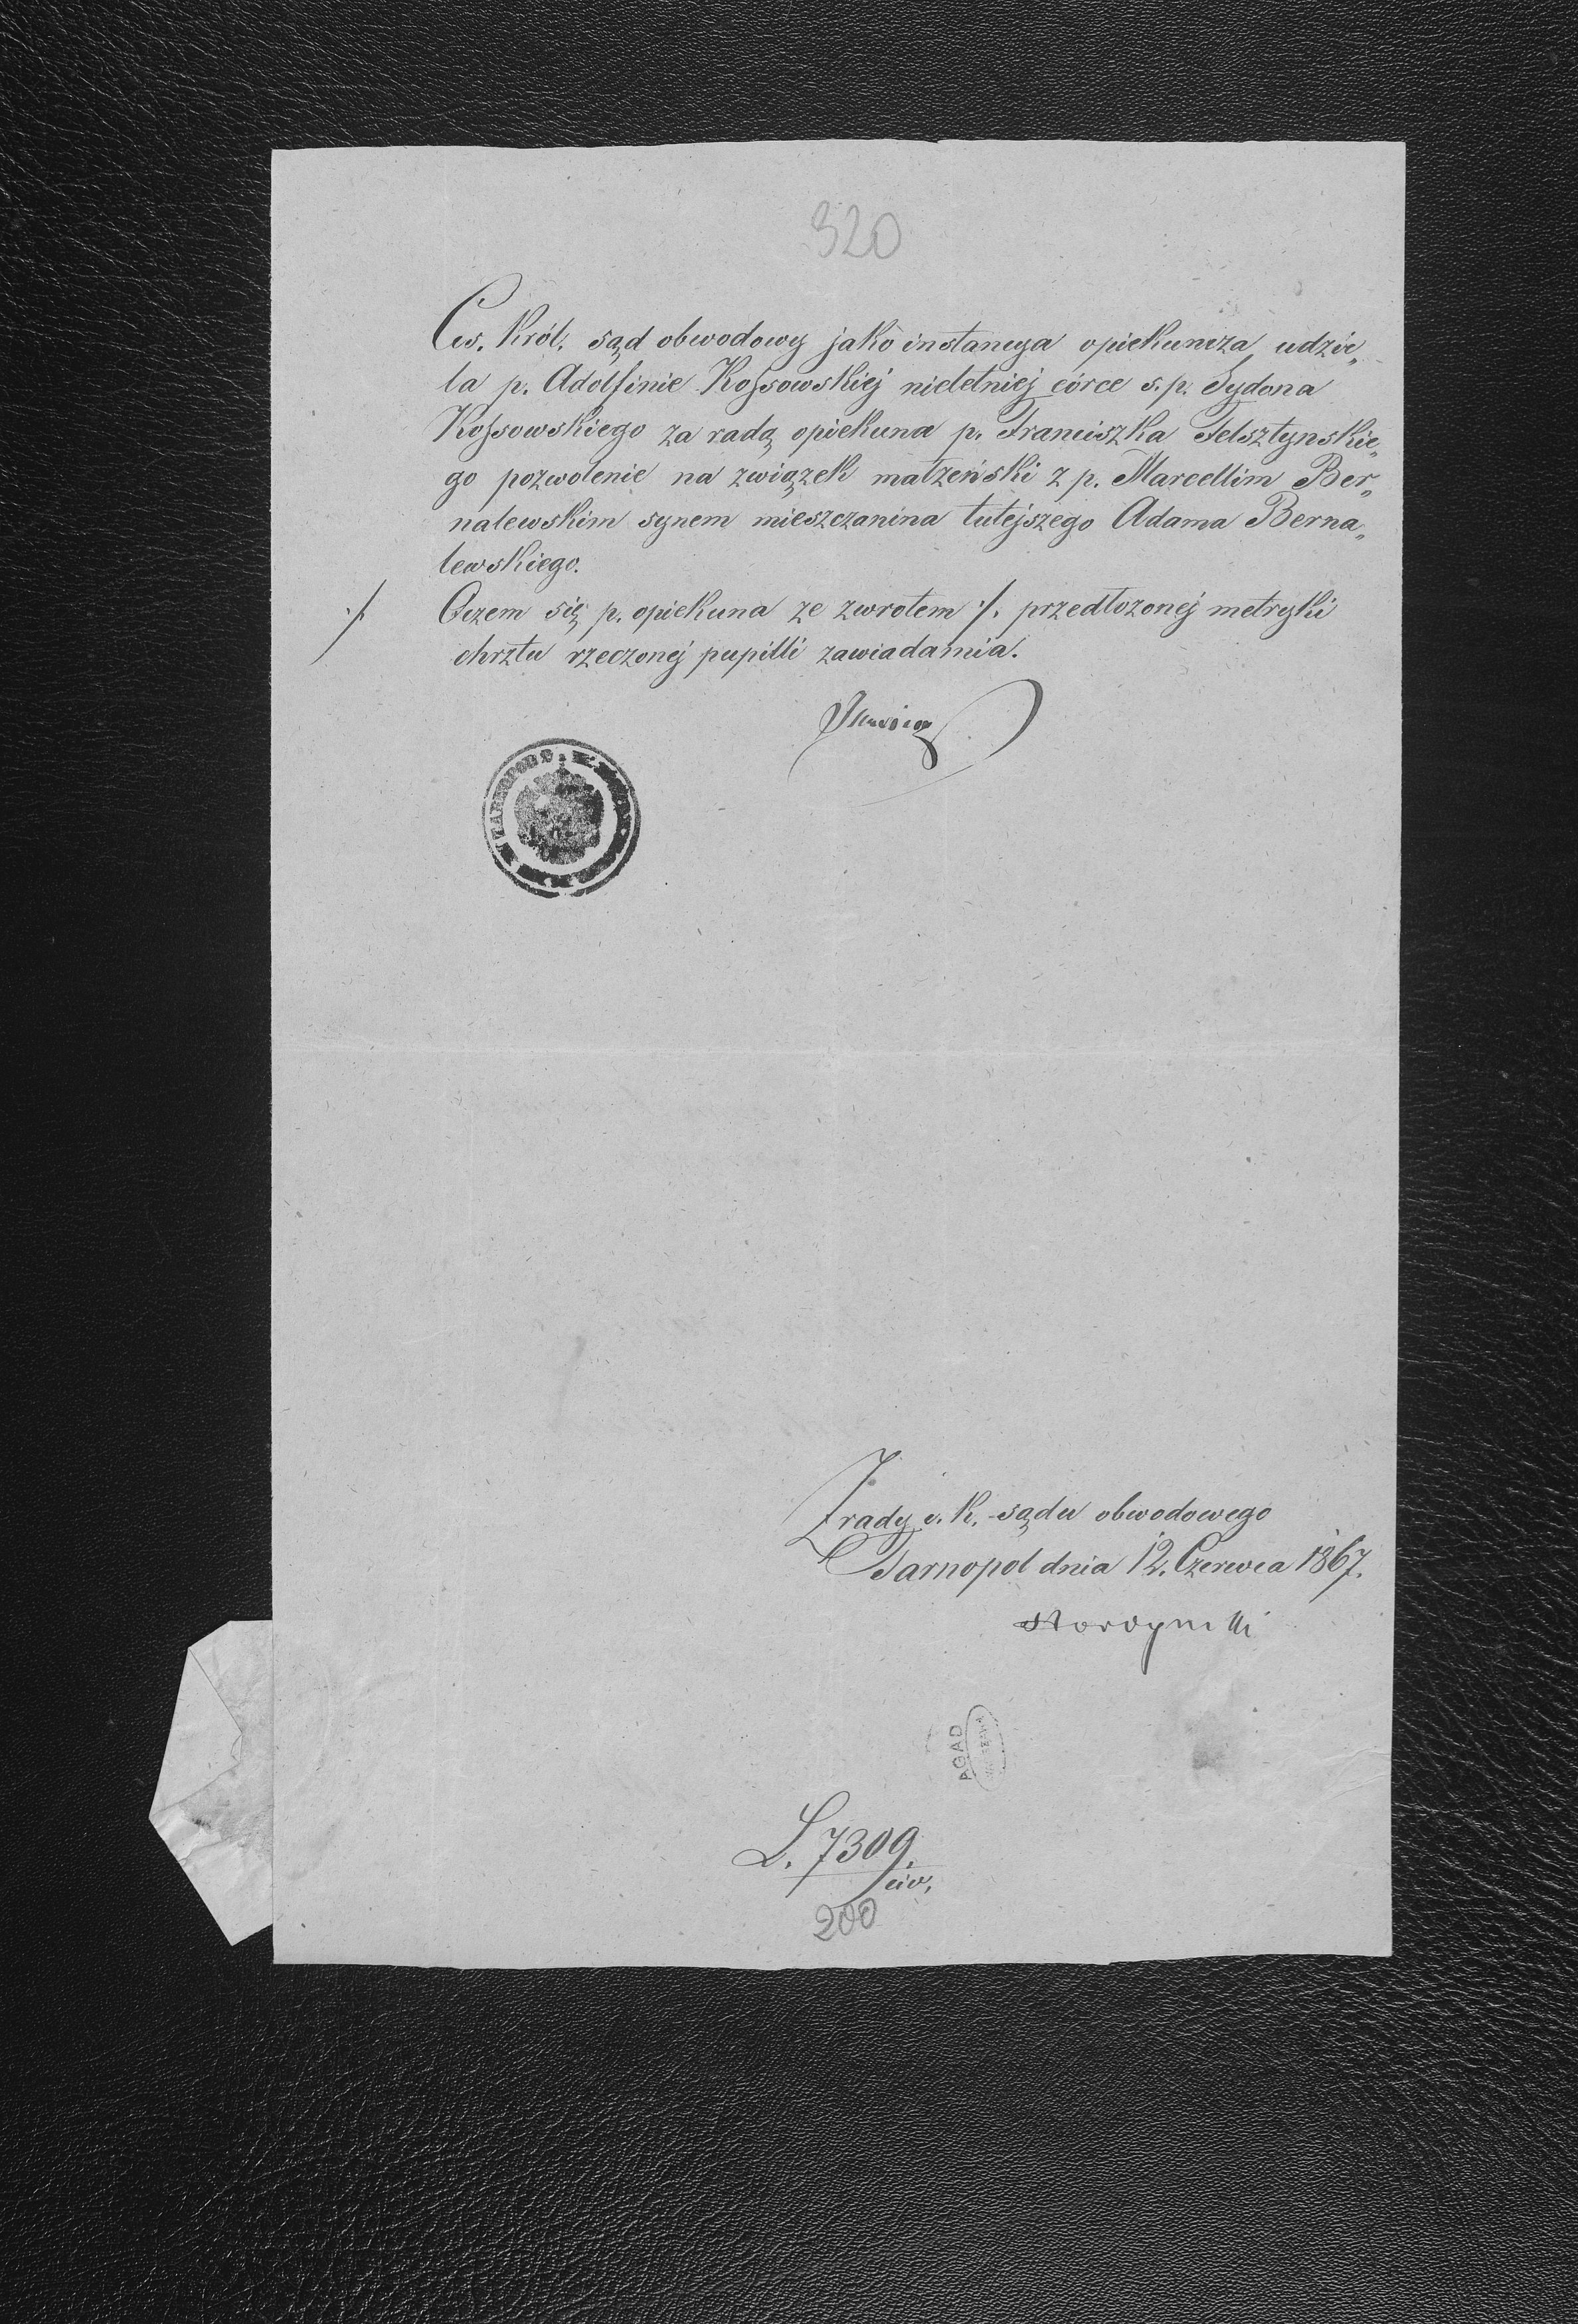 320
Ces. Król. sąd obwodowy jako instancya opiekuncza udzie„
la p. Adolfinie Kossowskiej nieletniej córce s.p. Sydona
Kossowskiego za radą opiekuna p. Franciszka Felsztynskie„
go pozwolenie na związek małżeński z p. Marcellim Ber„
nalewskim synem mieszczanina tutejszego Adama Berna„
lewskiego.
./. Oczem się p. opiekuna ze zwrotem ./. przedłożonej metryki
chrztu rzeczonej pupilli zawiadamia.
TARNOPOL
Z rady c. k. sądu obwodowego
Tarnopol dnia 12. Czerwca 1867.
AGAD
L. 7309.
civ.
200